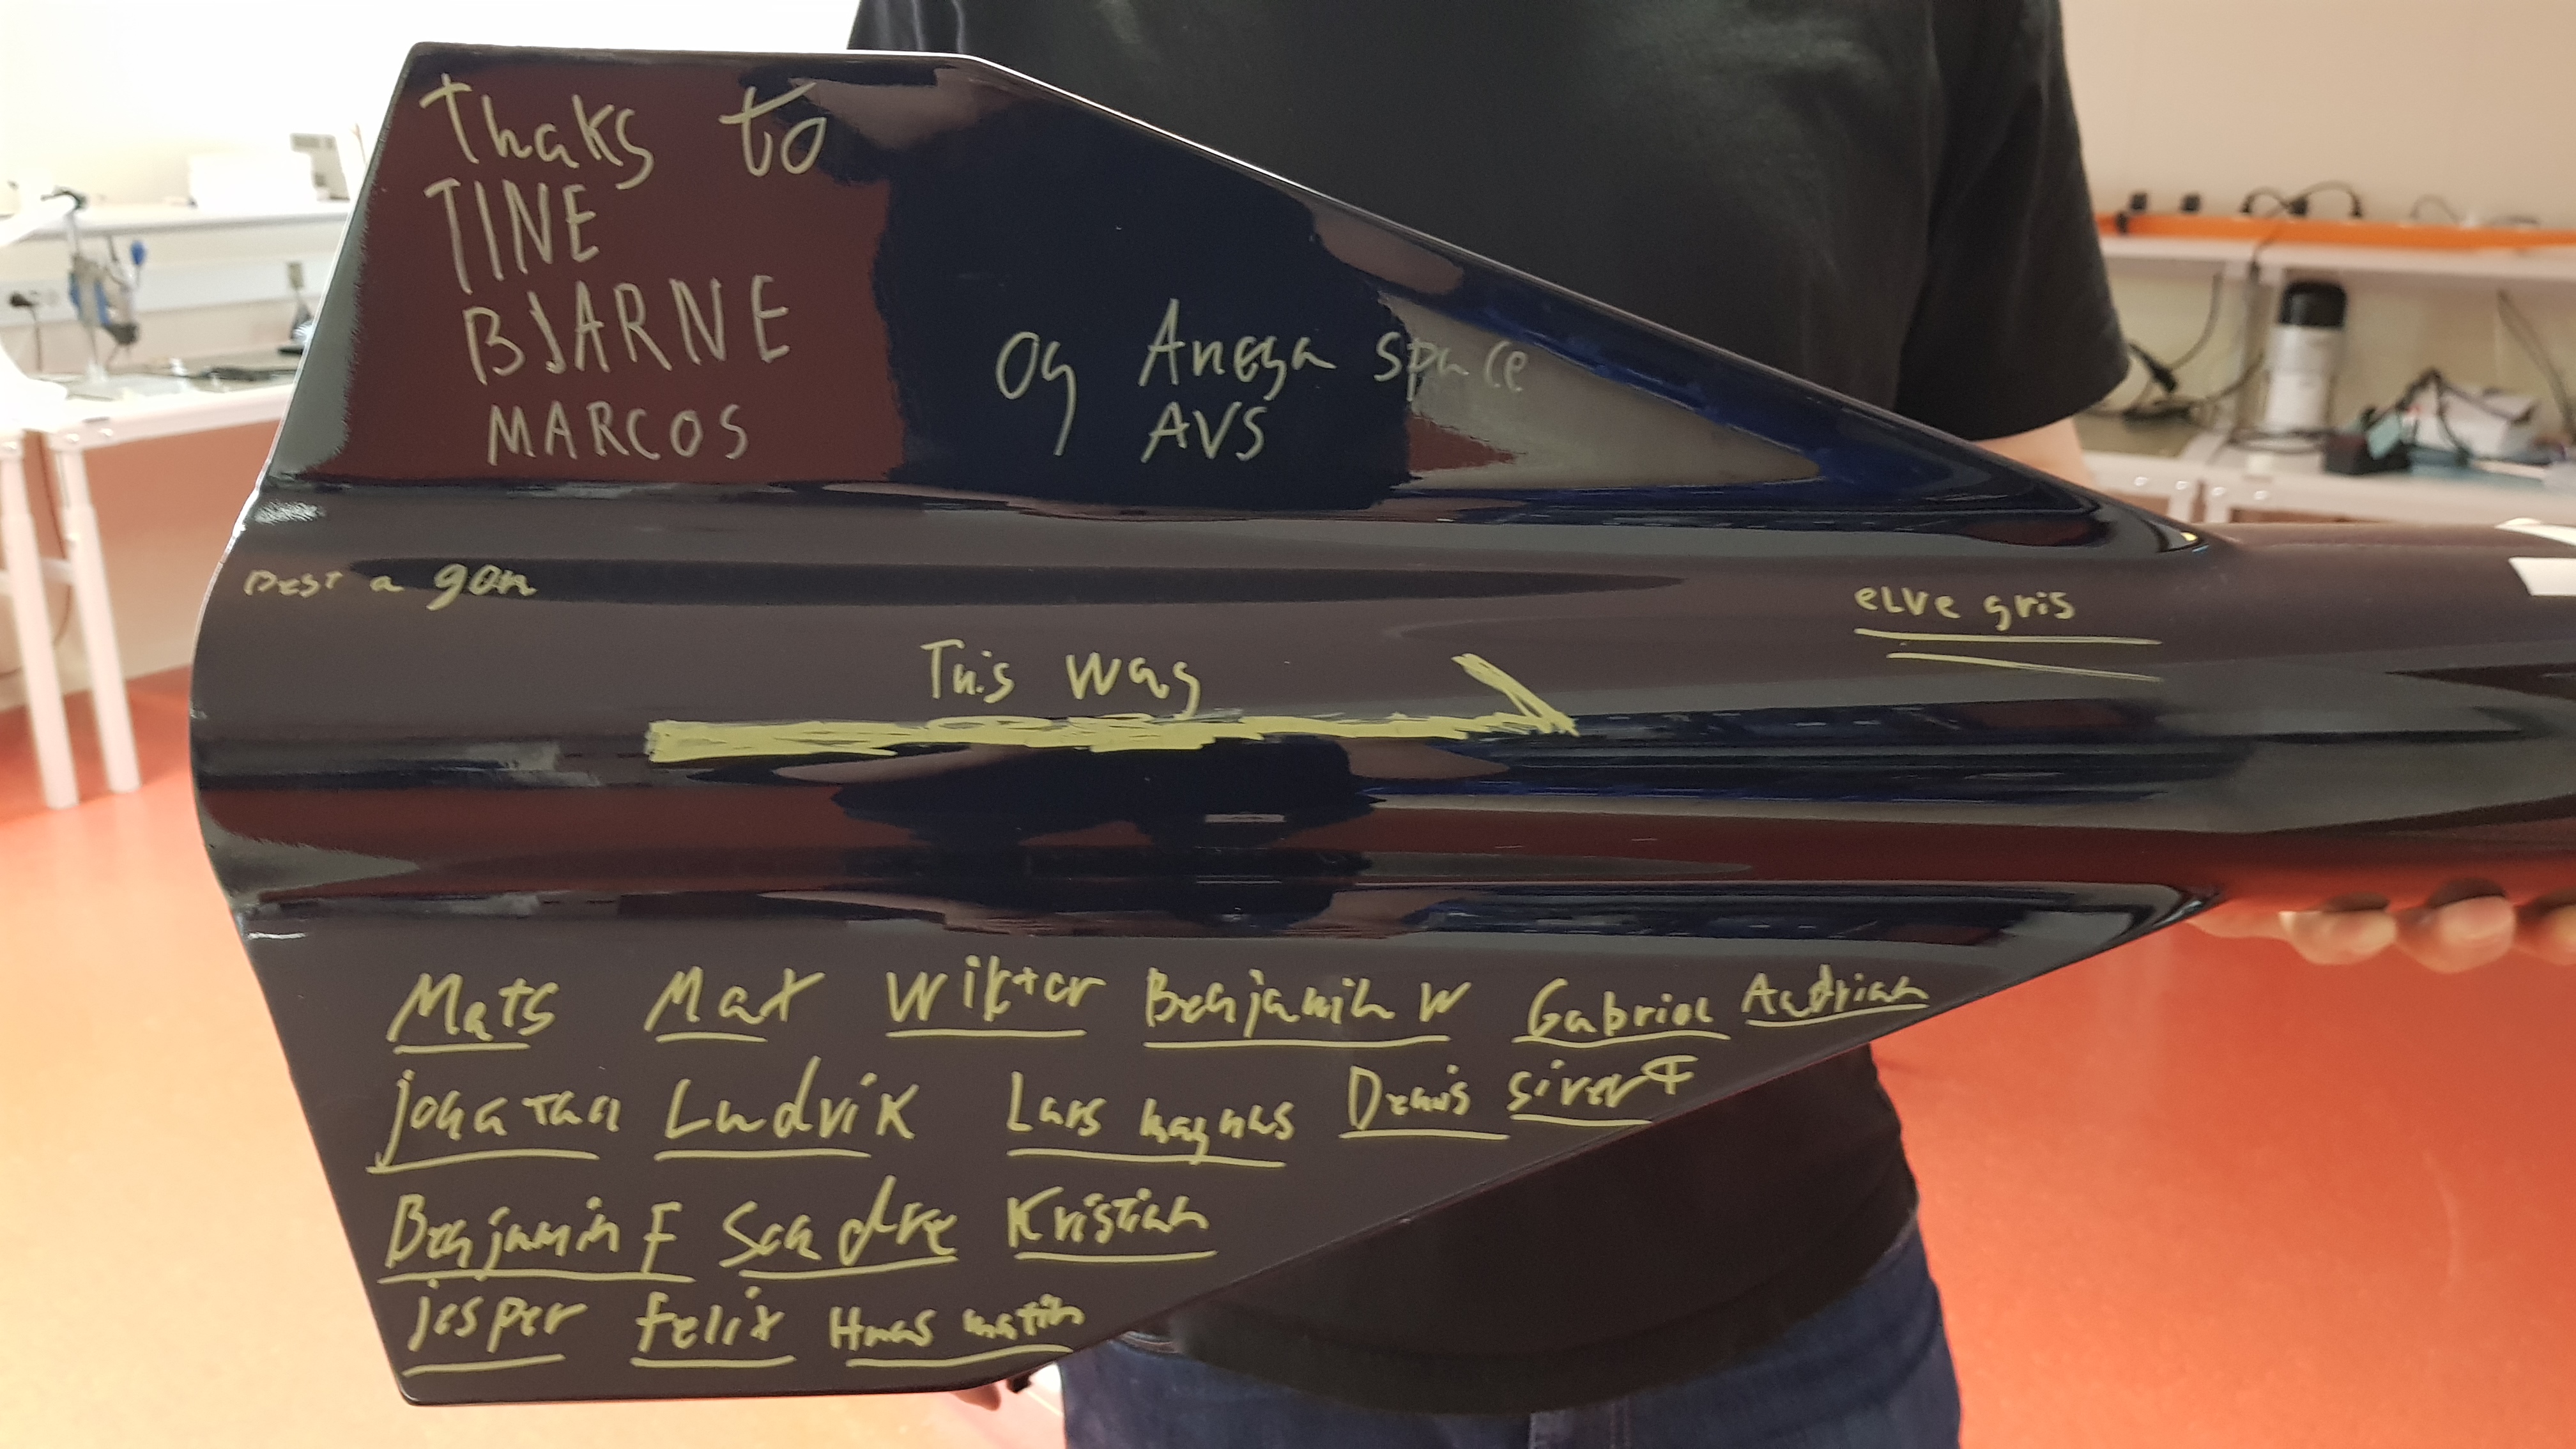 Thaks to
TINE
BJARNE
MARCOS
Og Anega space
AVS
a gon
elve gris
This way
Mats Max Wiktor Benjamin W Gabriel Aadrian
jonatan Ludvik Lars magnus Denis sivert
Benjamin F Sandre Kristian
jesper felix Hnas matin